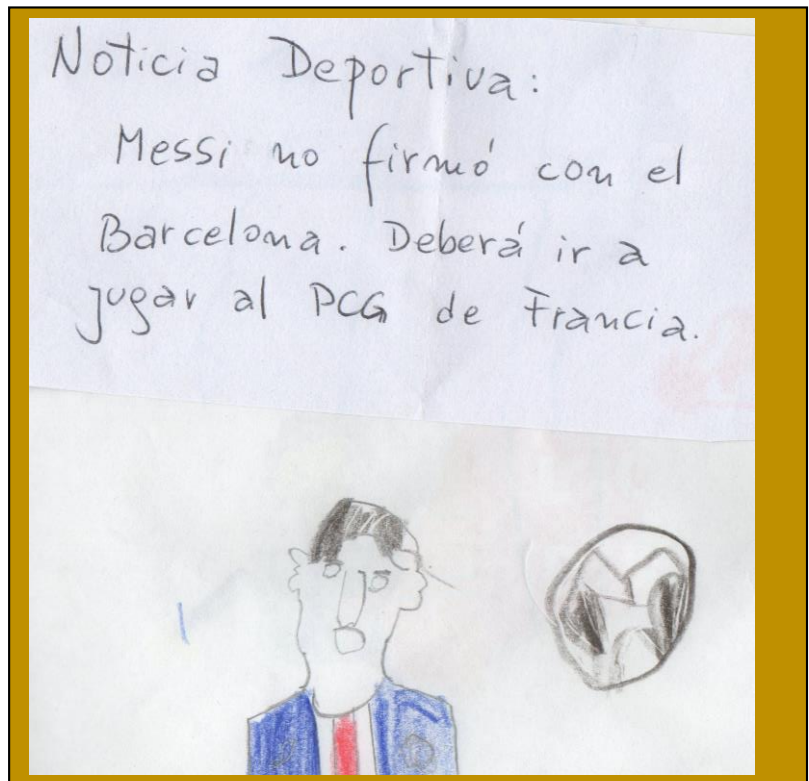 Noticia Deportiva:
Messi no firmó con el
Barcelona. Deberá ir a
jugar al PCG de Francia.